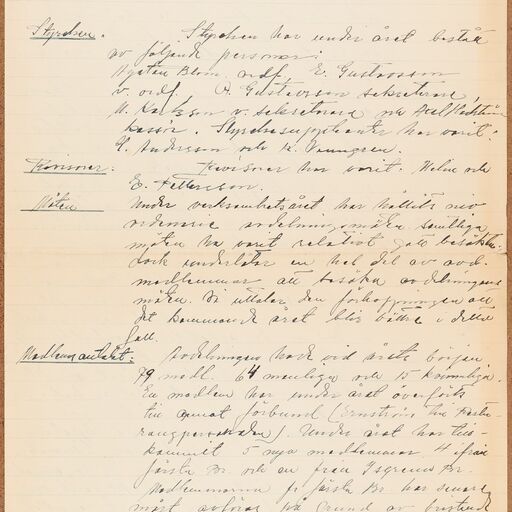 Styrelsen. Styrelsen har under året bestått
av följande personer:
Blom, ordf, E. Gustavsson
v. ordf, A. Gustavsson sekreterare
K. Karlsson v. sekreterare och Axel
kassör. Styrelsesuppleanter har varit:
E. Andersson och K.
Revisorer: Revisorer har varit. och
E. Pettersson.
Möten Under verksamhetsåret har hållits nio
ordinarie avdelningsmöten samtliga
möten har varit relativt gott besökta.
dock underlåter en hel del av avd.
medlemmar att besöka avdelningens
möten. Vi uttalar den förhoppningen att
det kommande året blir bättre i detta
fall.
Medlemsantalet. Avdelningen hade vid årets början
79 medl. 64 manliga och 15 kvinnliga.
En medlem har under året överförts
till annat förbund (Ernström till
). Under året har till-
kommit 5 nya medlemmar 4 ifrån
järsta Br. och en från Br.
Medlemmarna fr järsta Br. har senare
mest avförts på grund av bristande